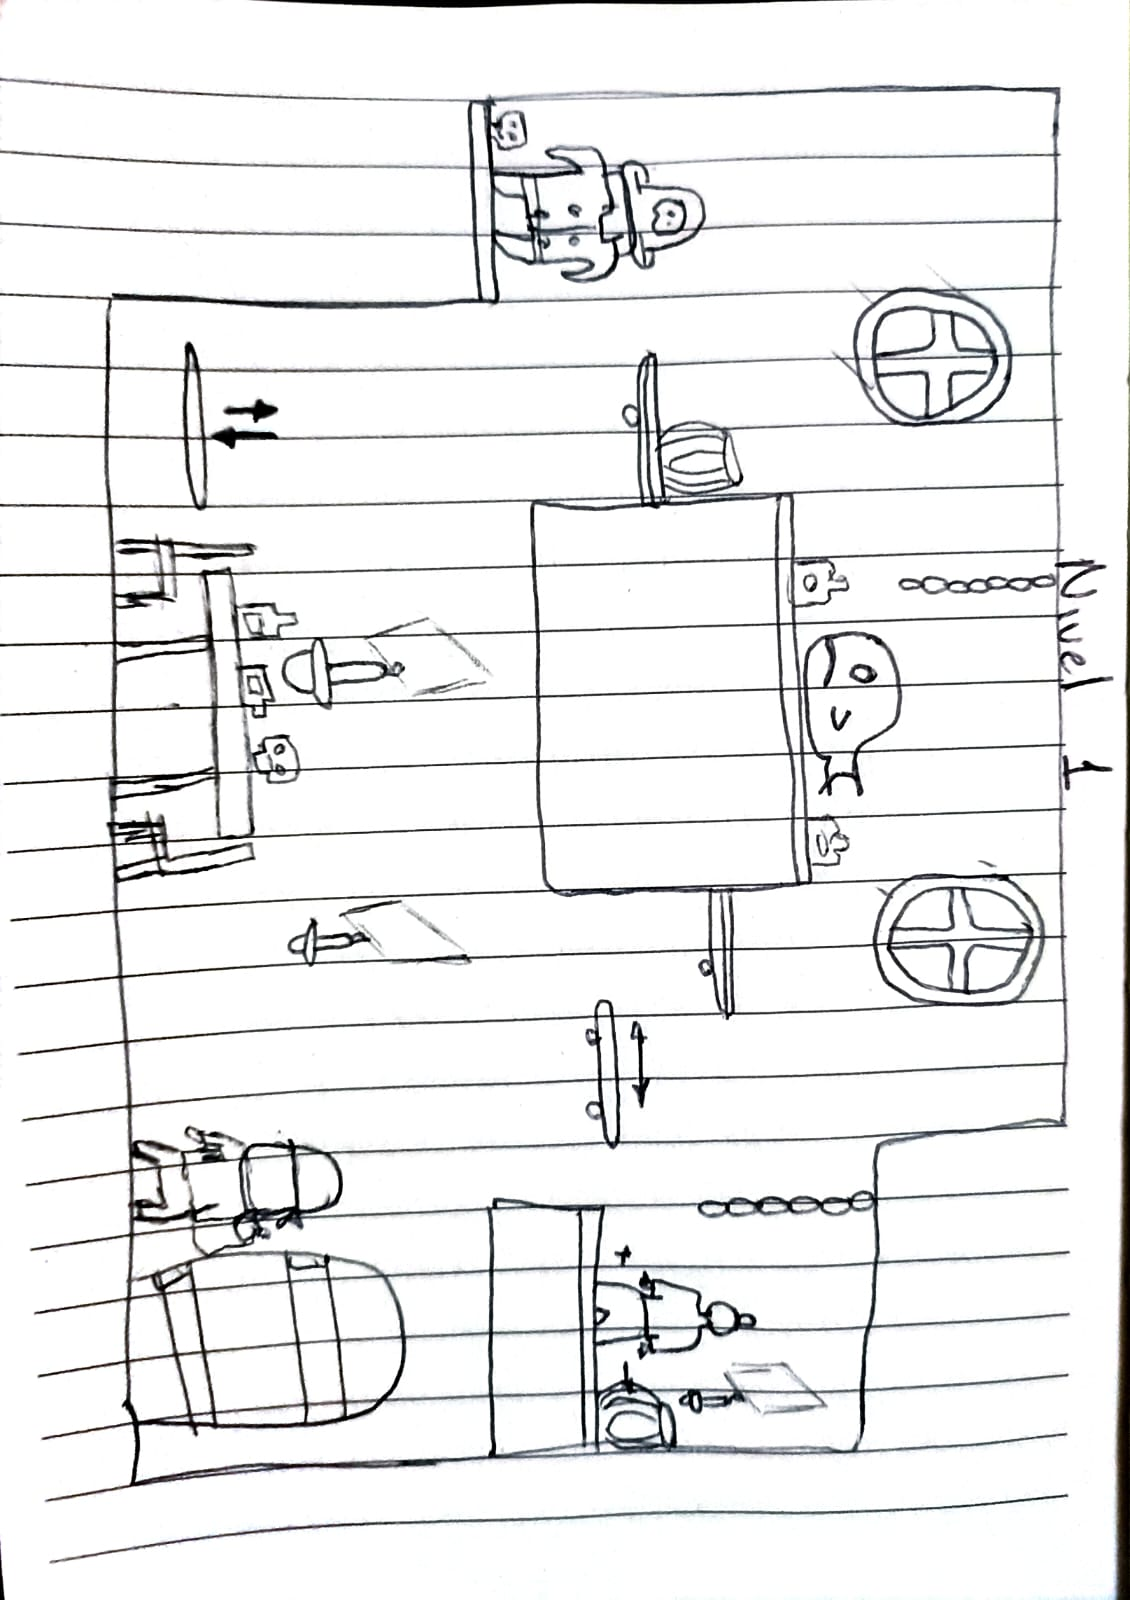 Nivel 1